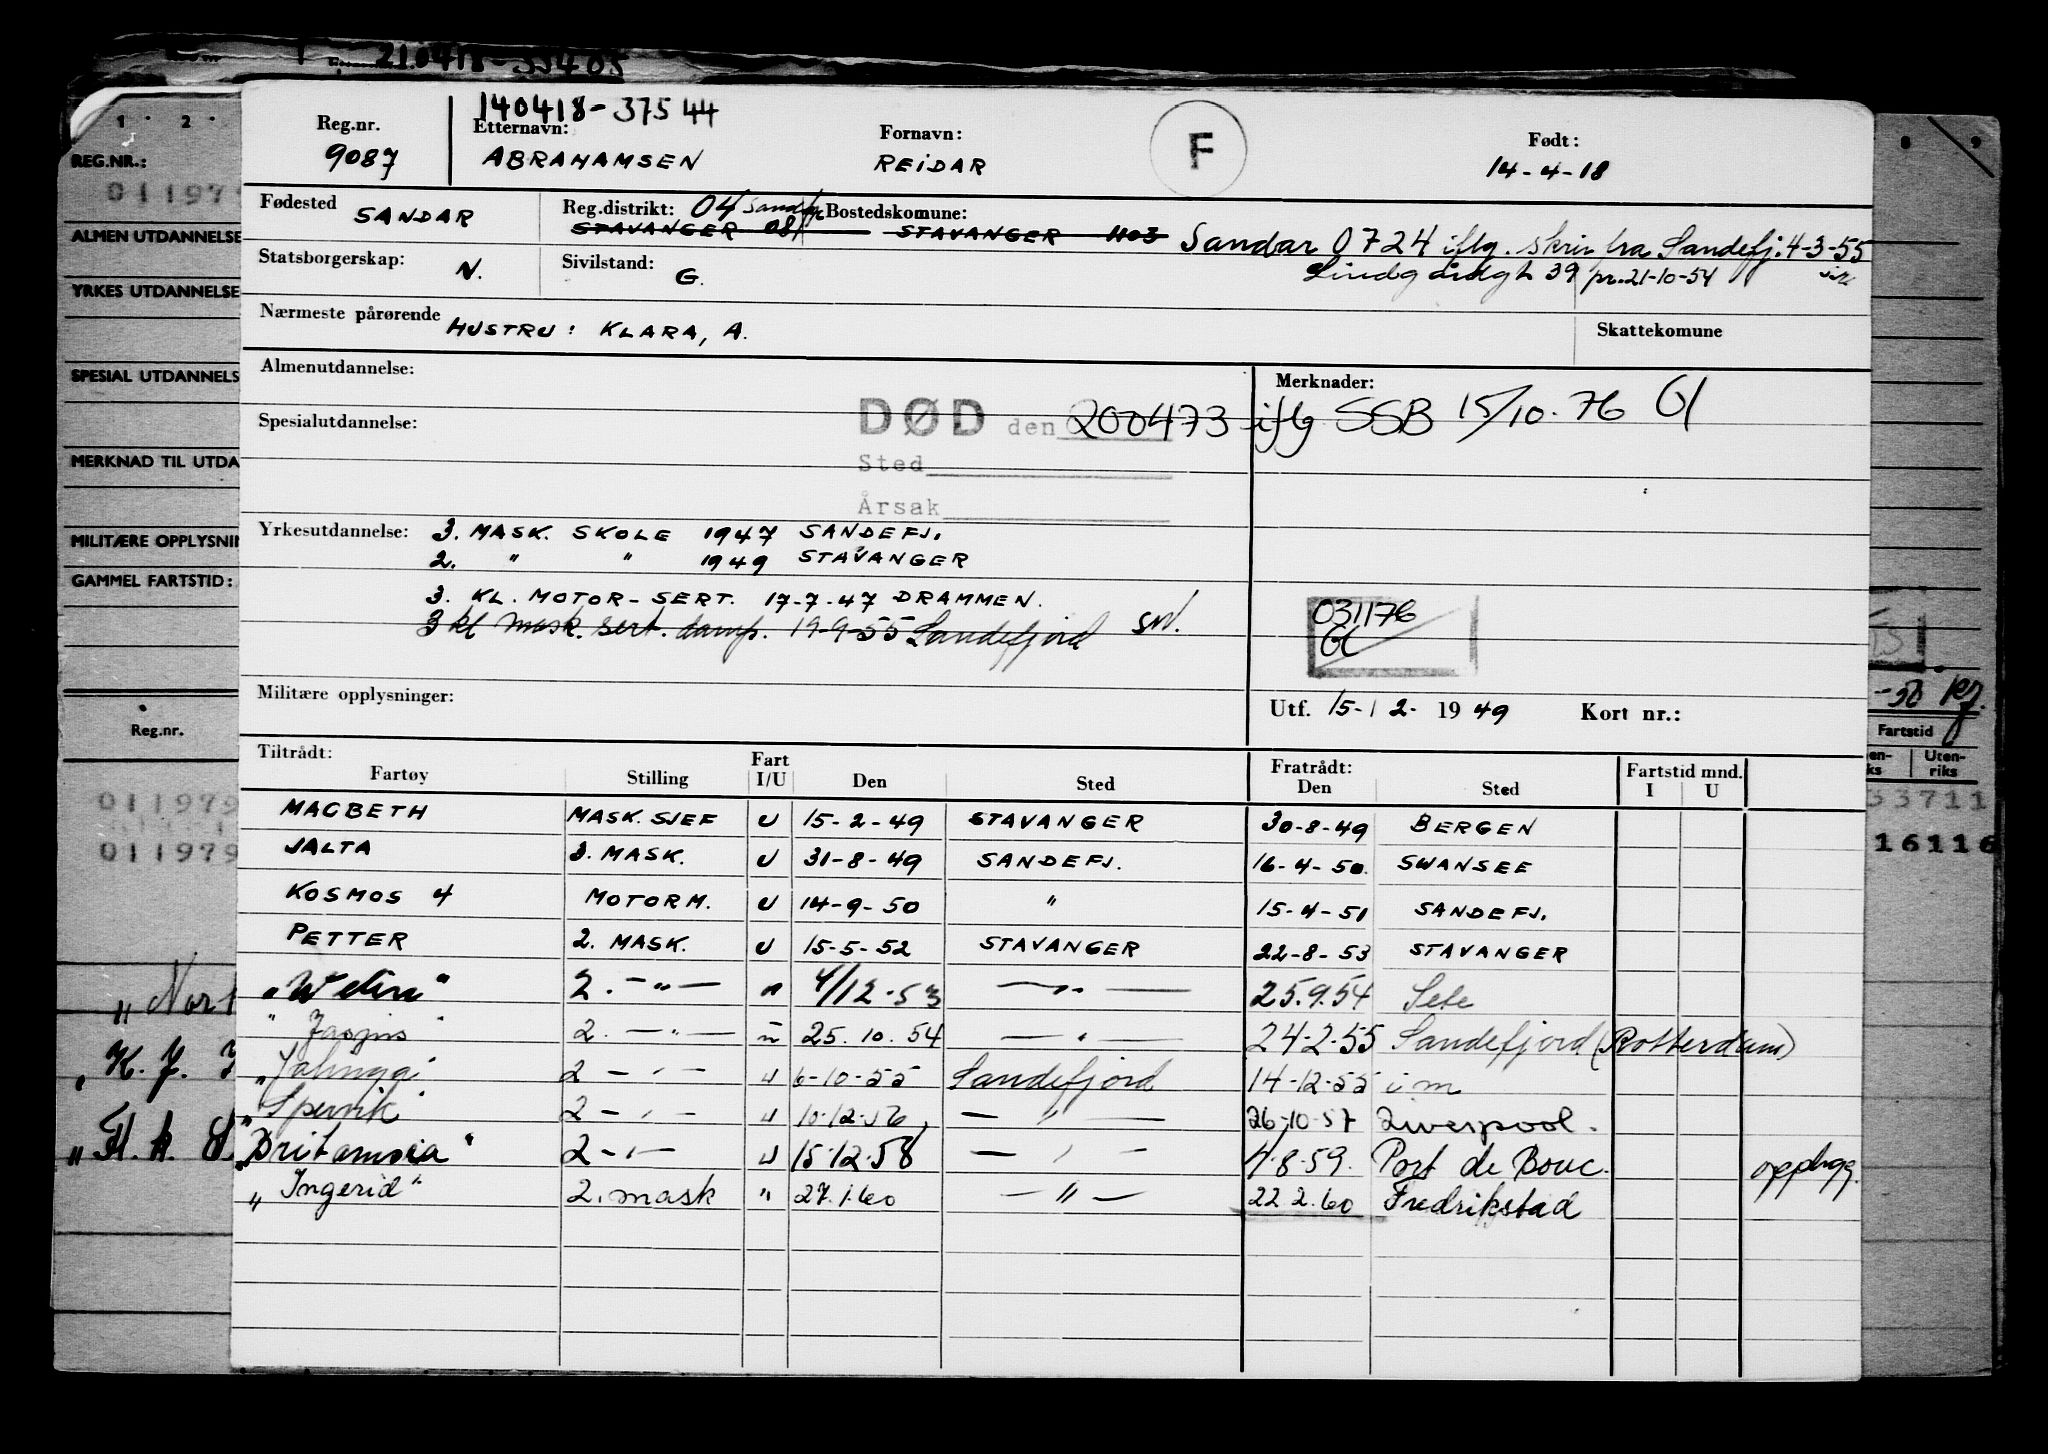 210418-33405
1 · 2 ·
8 9
REG.NR.:
011979
ALMEN UTDANNELSE
YRKES UTDANNELSE
SPESIAL UTDANNELS
MERKNAD TIL UTDA
MILITÆRE OPPLYSNIN
GAMMEL FARTSTID:
Reg.nr.
011979
011979
„Nor
„K. J.
140418-37544
Reg.nr. Etternavn: Fornavn: F Født:
9087 ABRAHAMSEN REIDAR 14-4-18
Fødested SANDAR Reg.distrikt: 04 Sandfj. Bostedskomune:
STAVANGER 081 STAVANGER 1103 Sandar 0724 iflg. skriv fra Sandefj. 4-3-55
Statsborgerskap: N. Sivilstand: G. Lindgårdgt 39 pr. 21-10-54
Nærmeste pårørende HUSTRU: KLARA, A. Skattekomune
Almenutdannelse: Merknader:
Spesialutdannelse: DØD den 200473 iflg SSB 15/10-76 Gl
Sted
Årsak
Yrkesutdannelse: 3. MASK. SKOLE 1947 SANDEFJ.
2. " " 1949 STAVANGER
3. KL. MOTOR-SERT. 17-7-47 DRAMMEN.
3 kl mask. sert. damp. 19-9-55 Sandefjord SW.
031176
Gl
Militære opplysninger: Utf. 15-12- 1949 Kort nr.:
-58
Fartstid
Uten-
riks
33711
16116
Tiltrådt: Fart Fratrådt: Fartstid mnd.
Fartøy Stilling I/U Den Sted Den Sted I U
MACBETH MASK.SJEF U 15-2-49 STAVANGER 30-8-49 BERGEN
JALTA 3. MASK. U 31-8-49 SANDEFJ. 16-4-50. SWANSEE
KOSMOS 4 MOTORM. U 14-9-50 " 15-4-51 SANDEFJ.
PETTER 2. MASK. U 15-5-52 STAVANGER 22-8-53 STAVANGER
2. —"— " 4/12-53 —"— 25.9.54 Sete
" 2. —"— " 25.10.54 —"— 24-2-55 Sandefjord (Rotterdam)
2 —"— u 6-10-55 Sandefjord 14-12-55 i m
Spervik" 2 —"— u 10-12-56, —"— 26-10-57 Liverpool.
„Britamsea" 2 —"— u 15-12-58 —"— 4-8-59. Port de Bouc. opphugg.
„Ingerid" 2. mask " 27.1.60 —"— 22.2.60 Fredrikstad